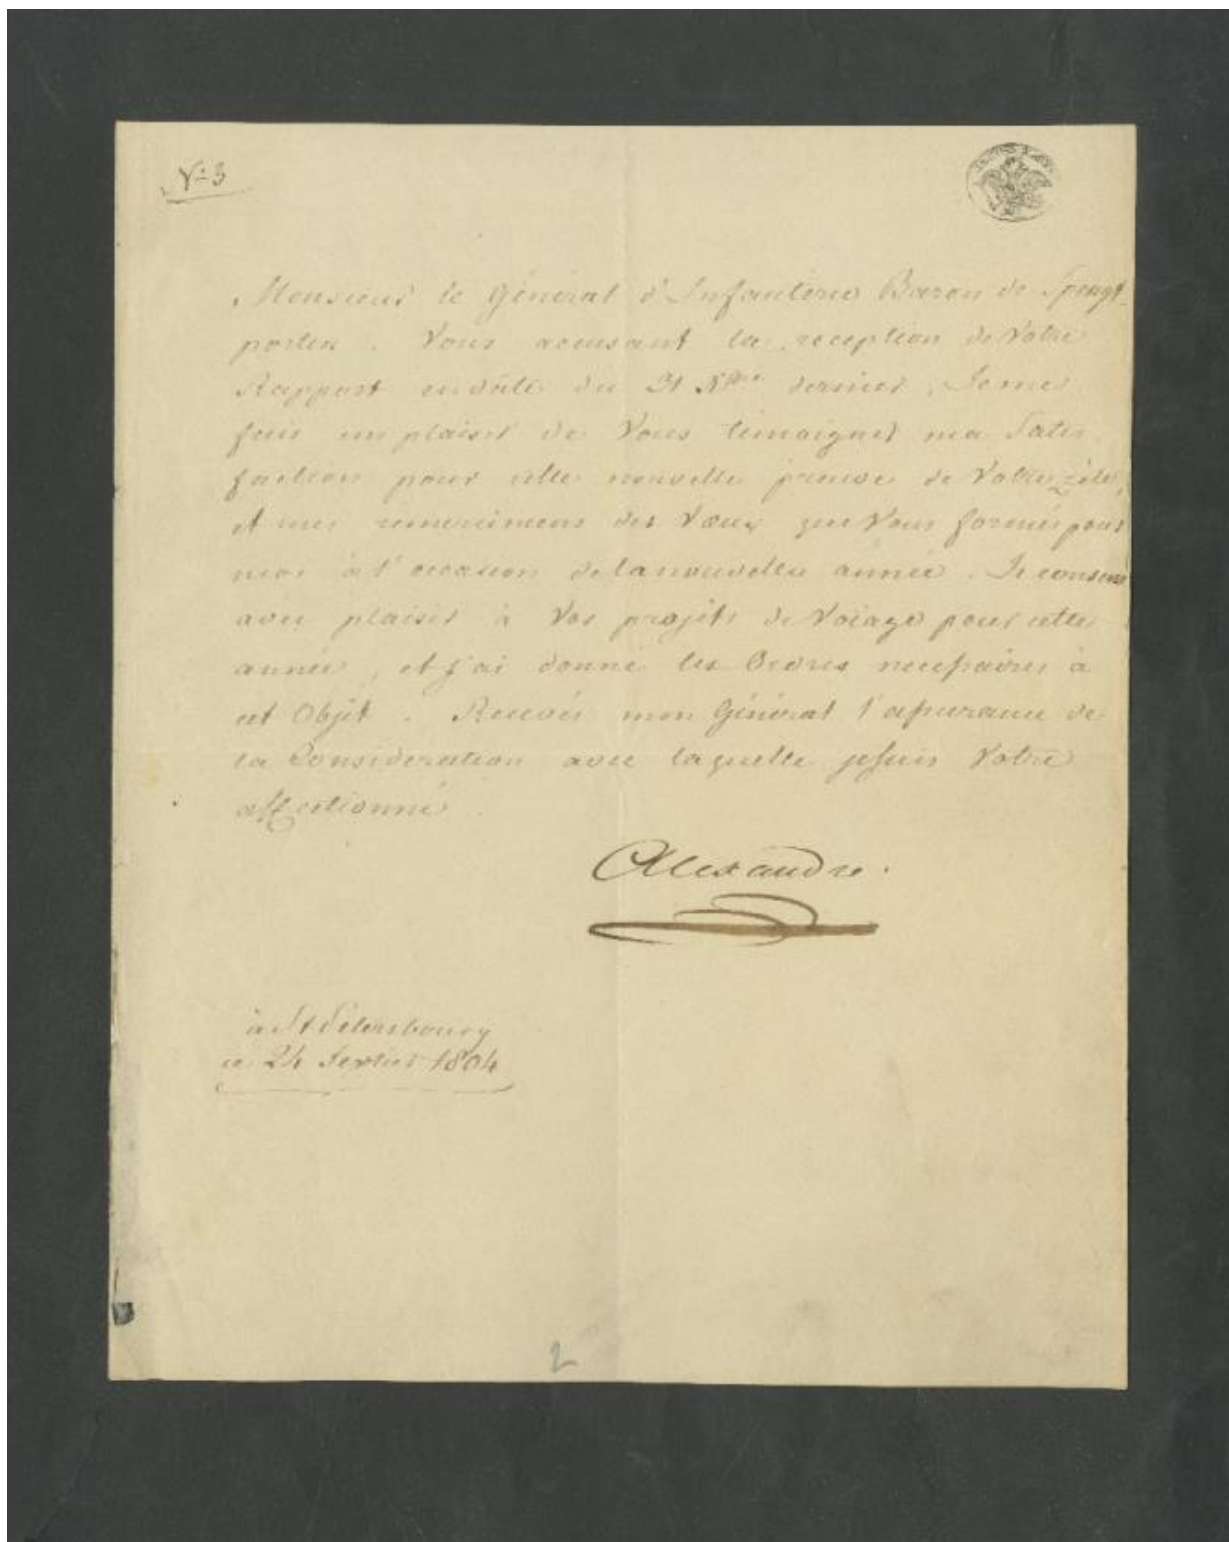 N=3
Monsieur le Général d'Infanterie Baron de Spengt-
porten. Vous accusant la reception de Votre
Rapport en date du 31 Xbre dernier, Je me
fais un plaisir de Vous témoigner ma Satis
faction pour cette nouvelle preuve de Votre zèle,
et mes remercimens des Vœux que Vous formés pour
moi à l'occasion de la nouvelle année. Je consens
avec plaisir à Vos projets de Voïage pour cette
année, et j'ai donné les Ordres necessaires à
cet Objet. Recevés mon Général l'assurance de
la Consideration avec laquelle je suis Votre
affectionné.
Alexandre.
à St Petersbourg
ce 24 Fevrier 1804
2